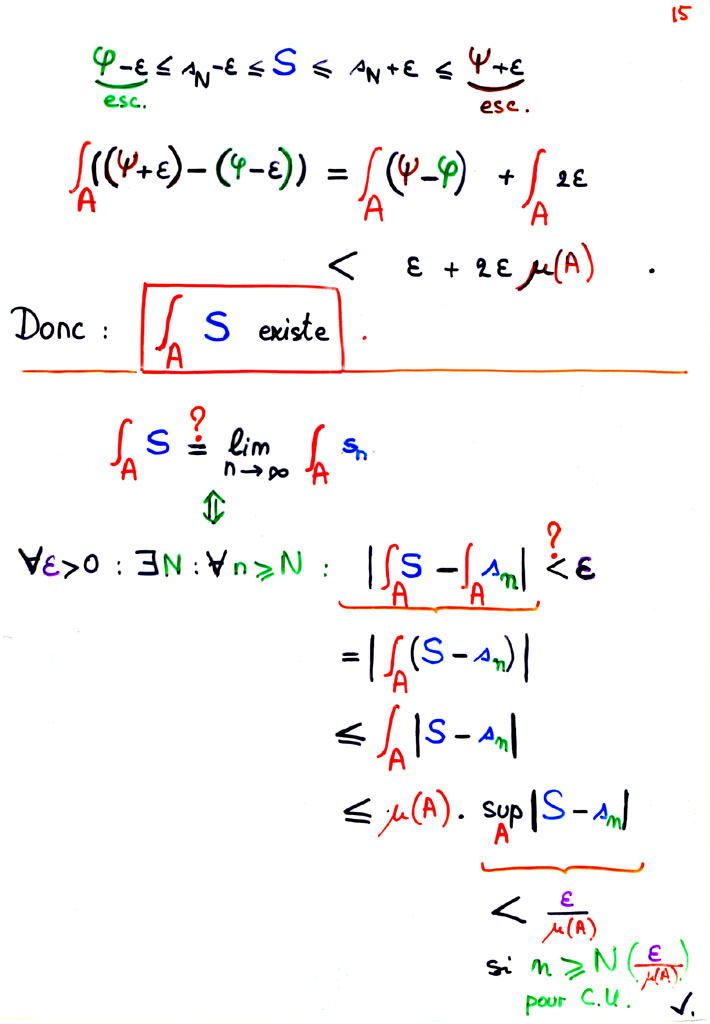 15
φ-ε ≤ s_N-ε ≤ S ≤ s_N+ε ≤ Ψ+ε
esc. esc.
∫_A ((Ψ+ε)-(φ-ε)) = ∫_A (Ψ-φ) + ∫_A 2ε
< ε + 2ε μ(A) .
Donc : ∫_A S existe .
∫_A S ?= lim_{n→∞} ∫_A s_n
⇕
∀ε>0 : ∃N : ∀n⩾N : |∫_A S - ∫_A s_n| ?< ε
= |∫_A (S - s_n)|
⩽ ∫_A |S - s_n|
⩽ μ(A) . sup_A |S - s_n|
< ε/μ(A)
si n ⩾ N(ε/μ(A))
pour C.U. ✓.